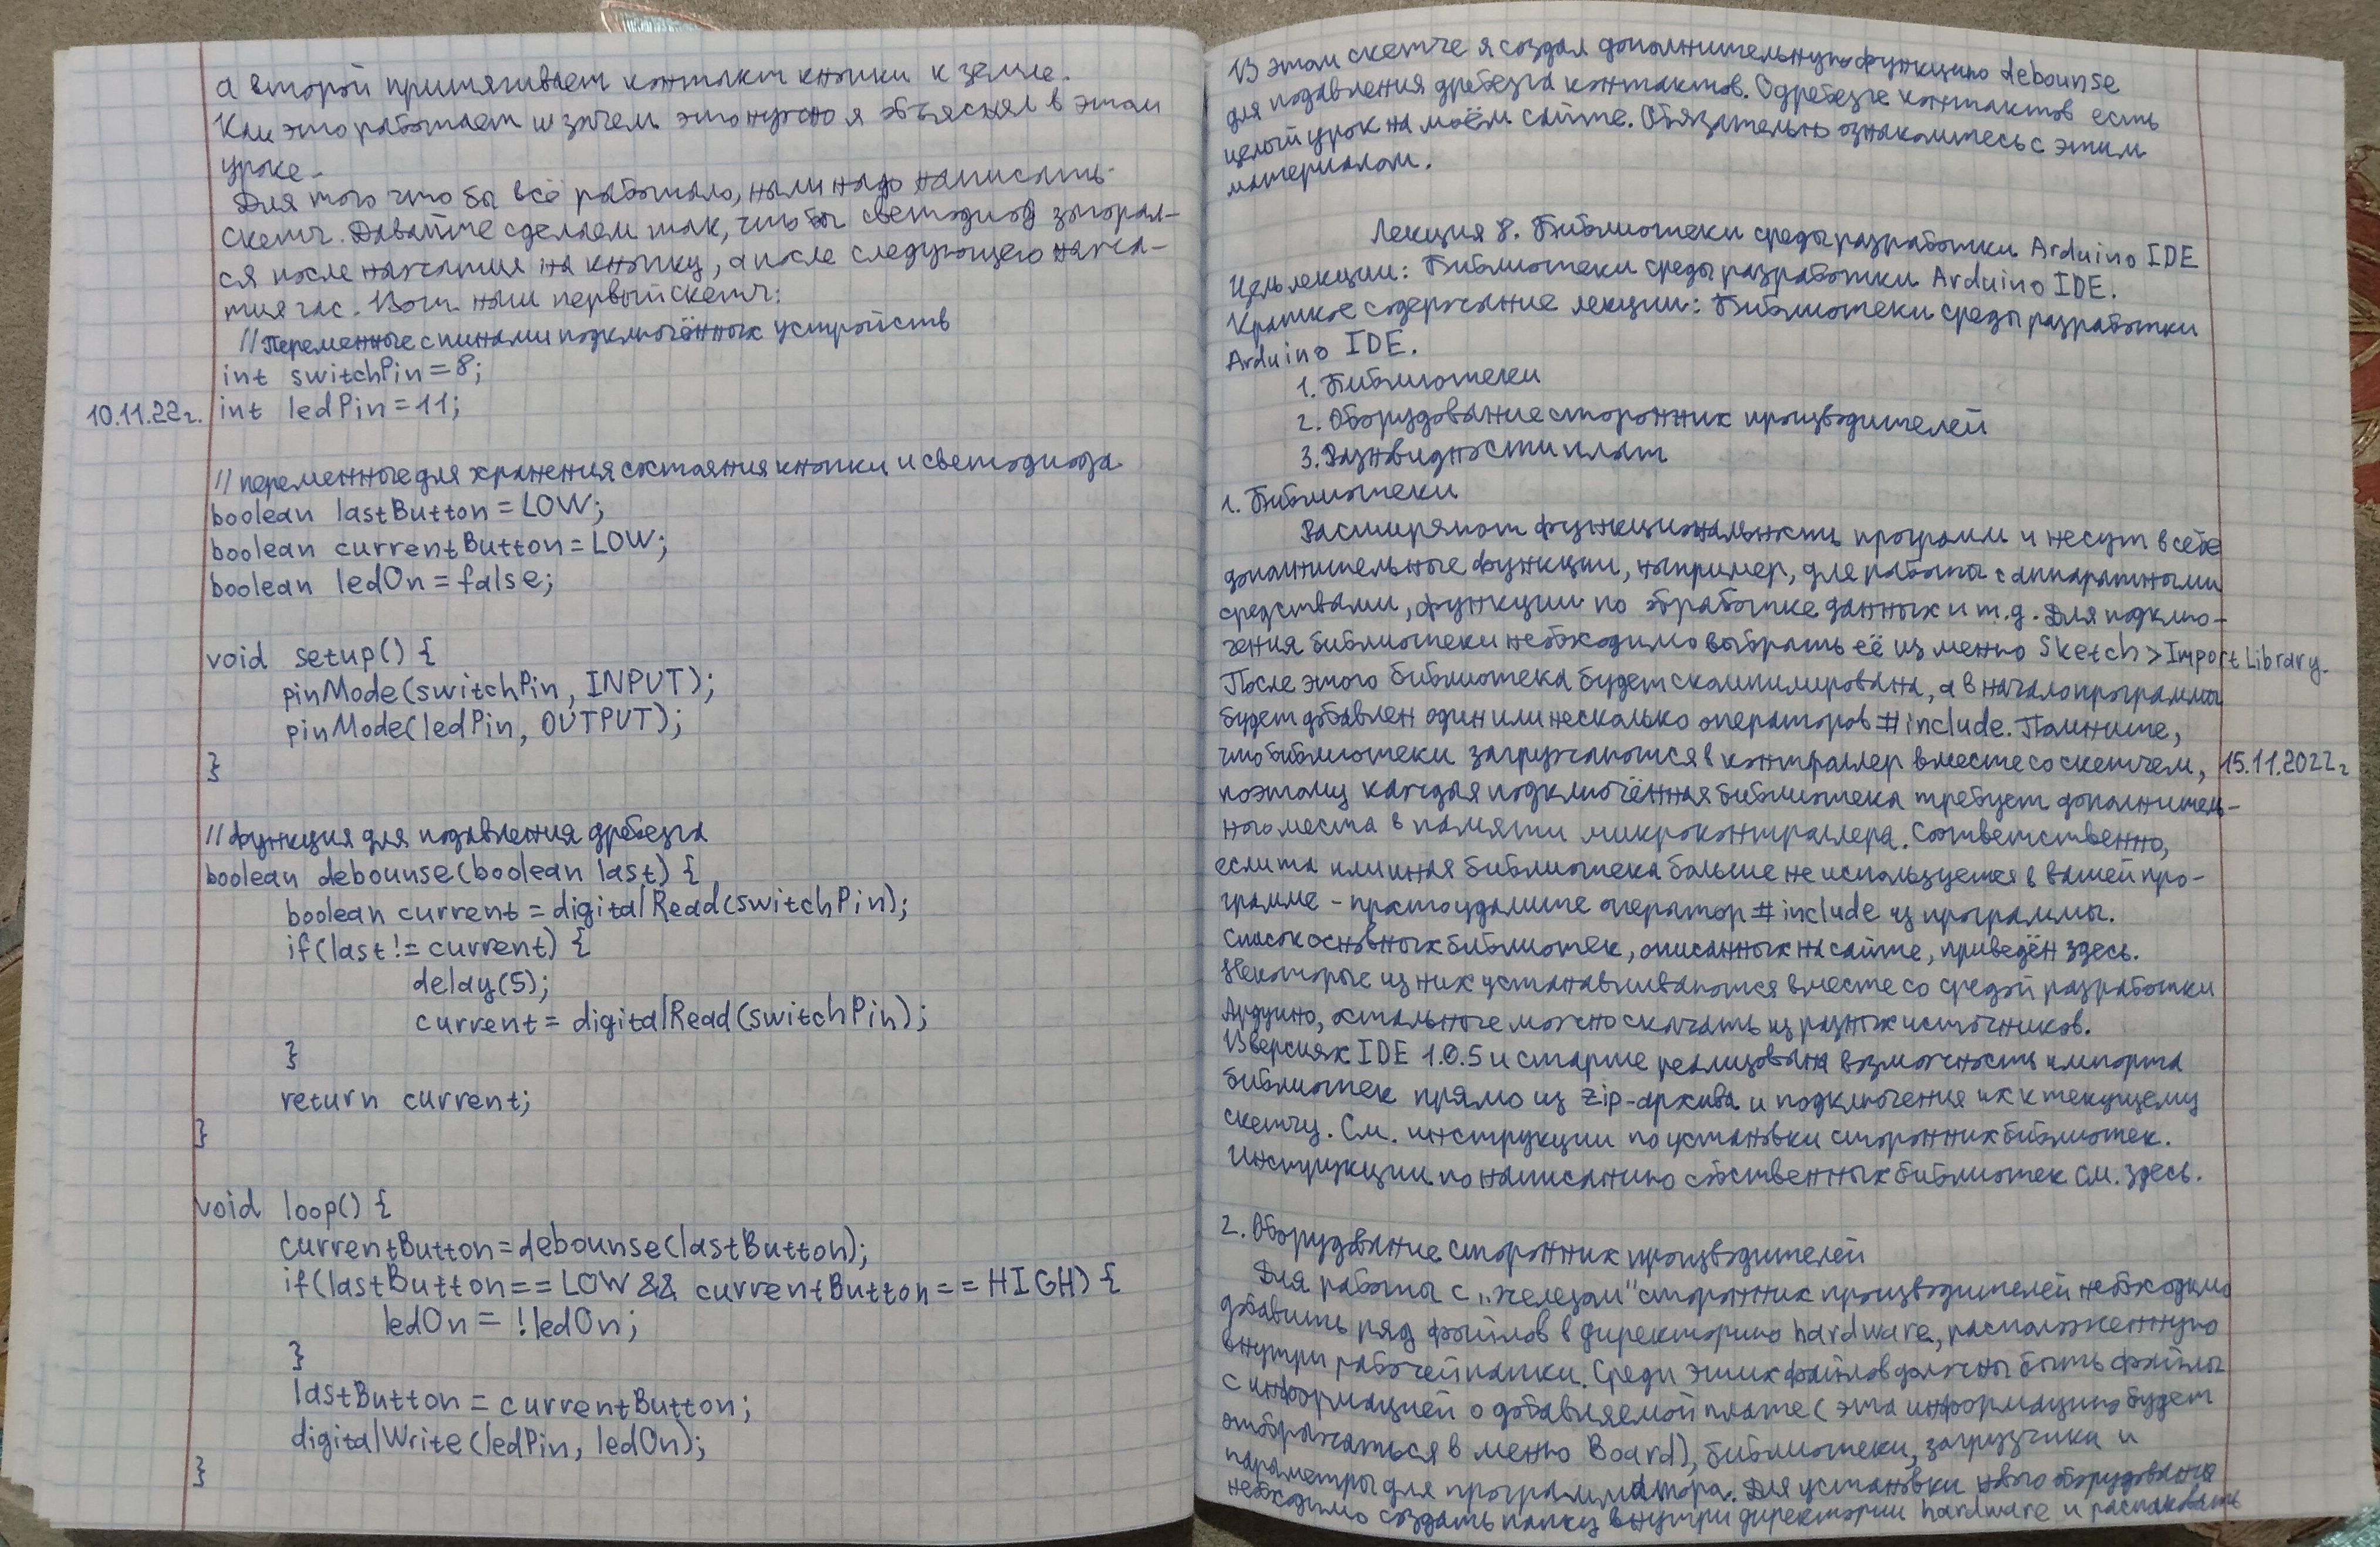 а второй притягивает контакт кнопки к земле.
Как это работает и зачем это нужно я объяснял в этом
уроке.
Для того что бы всё работало, нам надо написать
скетч. Давайте сделаем так, что бы светодиод загорал-
ся после нажатия на кнопку, а после следующего нажа-
тия гас. Вот наш первый скетч:
//Переменные с пинами подключённых устройств
int switchPin=8;
10.11.22г. int ledPin=11;
//переменные для хранения состояния кнопки и светодиода
boolean lastButton=LOW;
boolean currentButton=LOW;
boolean ledOn=false;
void setup() {
pinMode(switchPin, INPUT);
pinMode(ledPin, OUTPUT);
}
//функция для подавления дребезга
boolean debounse(boolean last) {
boolean current=digitalRead(switchPin);
if(last!=current) {
delay(5);
current=digitalRead(switchPin);
}
return current;
}
void loop() {
currentButton=debounse(lastButton);
if(lastButton==LOW && currentButton==HIGH) {
ledOn=!ledOn;
}
lastButton=currentButton;
digitalWrite(ledPin, ledOn);
}
В этом скетче я создал дополнительную функцию debounse
для подавления дребезга контактов. О дребезге контактов есть
целый урок на моём сайте. Обязательно ознакомьтесь с этим
материалом.
Лекция 8. Библиотеки среды разработки Arduino IDE
Цель лекции: Библиотеки среды разработки Arduino IDE.
Краткое содержание лекции: Библиотеки среды разработки
Arduino IDE.
1. Библиотеки
2. Оборудование сторонник производителей
3. Разновидности плат
1. Библиотеки
Расширяют функциональность программ и несут в себе
дополнительные функции, например, для работы с аппаратными
средствами, функции по обработке данных и т.д. Для подклю-
чения библиотеки необходимо выбрать её из меню Sketch>Import Library.
После этого библиотека будет скомпилирована, а в начало программы
будет добавлен один или несколько операторов #include. Помните,
что библиотеки загружаются в контроллер вместе со скетчем, 15.11.2022г
поэтому каждая подключённая библиотека требует дополнитель-
ного места в памяти микроконтроллера. Соответственно,
если та или иная библиотека больше не используется в вашей про-
грамме - просто удалите оператор #include из программы.
Список основных библиотек, описанных на сайте, приведён здесь.
Некоторые из них устанавливаются вместе со средой разработки
Ардуино, остальные можно скачать из разных источников.
В версиях IDE 1.0.5 и старше реализована возможность импорта
библиотек прямо из zip-архива и подключения их к текущему
скетчу. См. инструкции по установки сторонних библиотек.
Инструкции по написанию собственных библиотек см. здесь.
2. Оборудование сторонник производителей
Для работы с "железом" сторонник производителей необходимо
добавить ряд файлов в директорию hardware, расположенную
внутри рабочей папки. Среди этих файлов должны быть файлы
с информацией о добавляемой плате (эта информацию будет
отображаться в меню Board), библиотеки, загрузчики и
параметры для программатора. Для установки нового оборудования
необходимо создать папку внутри директории hardware и распаковать